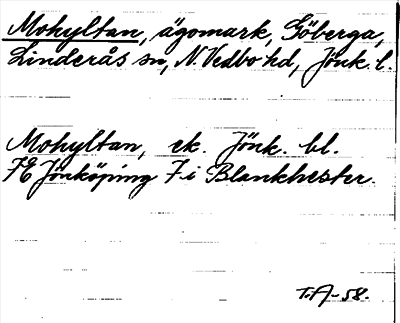 Mohyltan, ägomark, Göberga,
Linderås sn, N. Vedbo hd, Jönk. l.
Mohyltan, ek. Jönk. bl.
7E Jönköping 7 i Blankhester.
T.A-58.